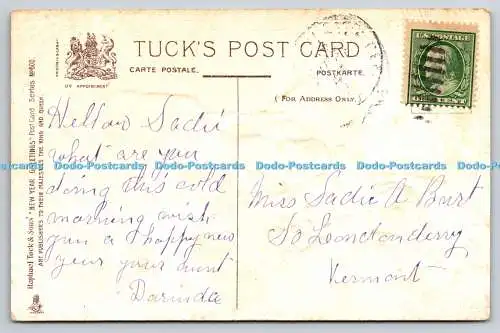 TUCK'S POST CARD
CARTE POSTALE.
POSTKARTE.
BY APPOINTMENT
(FOR ADDRESS ONLY.)
U.S. POSTAGE
CENT
Raphael Tuck & Sons' "NEW YEAR GREETINGS" Post Card Series No 600.
ART PUBLISHERS TO THEIR MAJESTIES THE KING AND QUEEN.
Hellow Sadie
what are you
doing this cold
morning wish
you a happy new
year your aunt
Darinda
Miss Sadie A Burt
So Londonderry
Vermont
Dodo-Postcards Dodo-Postcards Dodo-Postcards Dodo-Postcards Dodo-Postcards